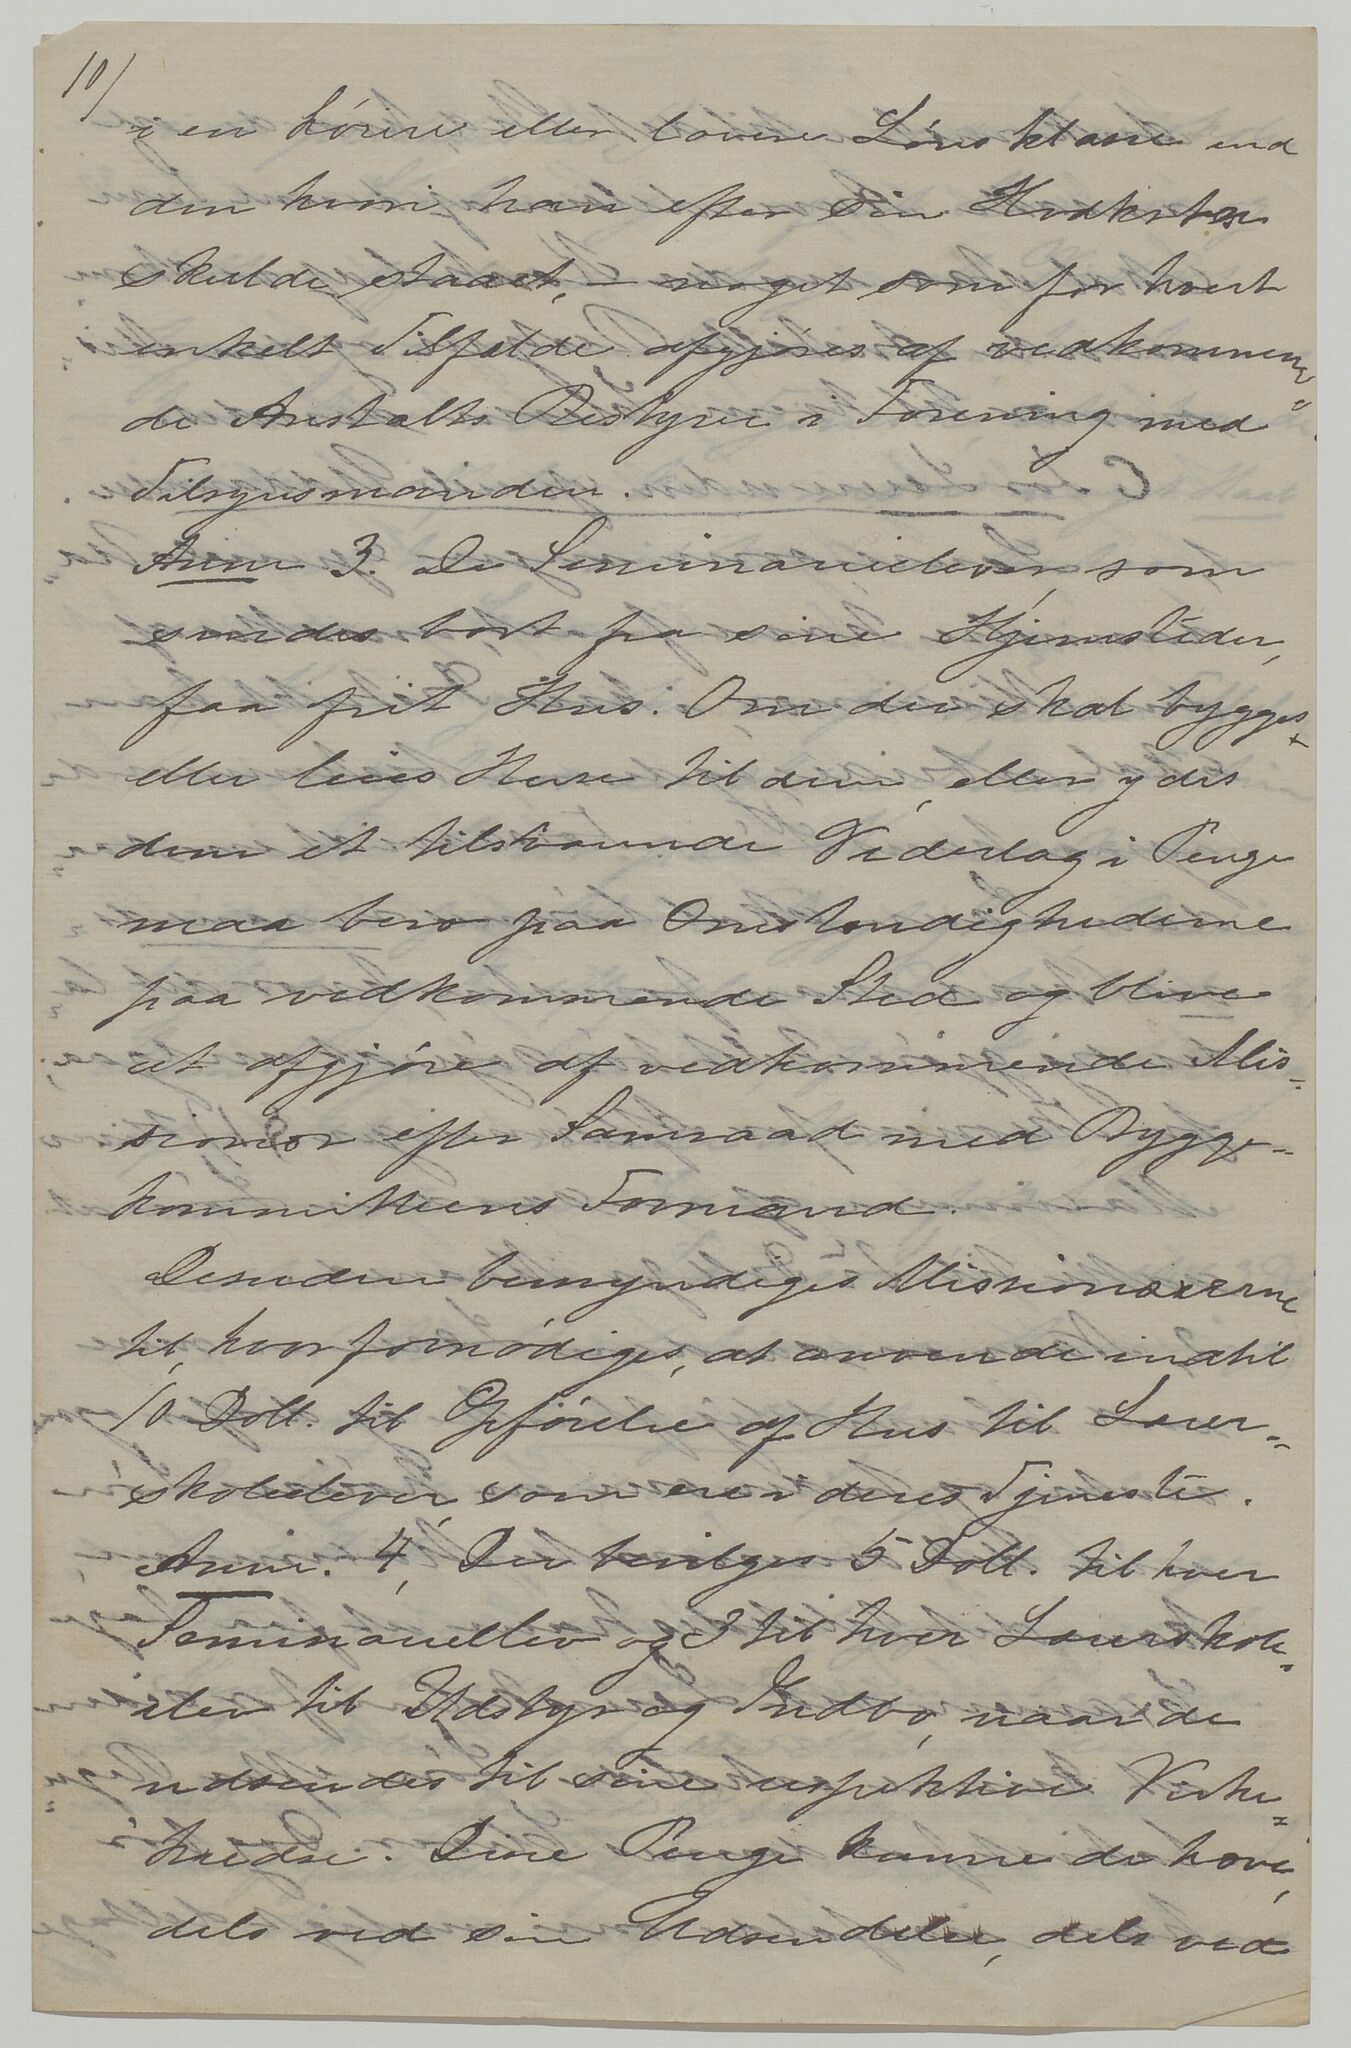 10/
i en höiere eller lavere Lönsklasse end
den hvori han efter sin Hovedkarakter
skulde staaet, – noget som for hvert
enkelt Tilfælde afgjöres af vedkommen-
de Anstalts Bestyrer i Forening med
Tilsynsmanden.
Anm 3. De Seminarieelever, som
sendes bort fra sine Hjemsteder,
faa frit Hus. Om der skal bygges
eller leies Huse til dem, eller ydes
dem et tilsvarende Vederlag i Penge
maa bero paa Omstændighederne
paa vedkommende Sted og blive
at afgjöre af vedkommende Mis-
sionær efter Samraad med Bygge-
kommitteens Formand.
Desuden bemyndiges Missionærerne
til, hvor fornödiges, at anvende indtil
10 Doll. til Opförelse af Hus til Lærer-
skoleelever, som ere i deres Tjeneste.
Anm. 4, Der bevilges 5 Doll. til hver
Seminarieelev og 3 til hver Lærerskole-
elev til Udstyr og Indbo, naar de
udsendes til sine respektive Virke-
kredse. Disse Penge kunne de hæve,
dels ved sin Udsendelse, dels ved